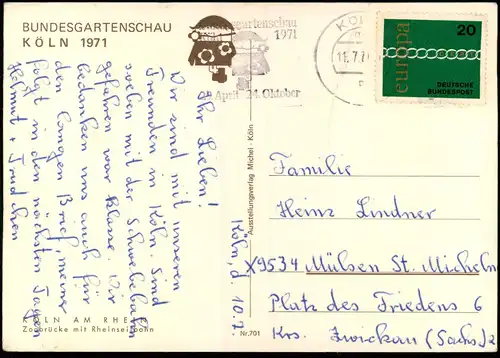 BUNDESGARTENSCHAU
KÖLN 1971
Bundesgartenschau
1971
April 24. Oktober
KÖ
11.7.71
europa
20
DEUTSCHE
BUNDESPOST
Köln, d. 10.7.
Ihr Lieben!
Wir sind mit unseren
Freunden in Köln. Sind
soeben mit der Schwebebahn
gefahren war Klasse. Wir
bedanken uns auch für
den langen Brief, meine
folgt in den nächsten Tagen
Helmut + Trudchen
KÖLN AM RHEIN
Zoobrücke mit Rheinseilbahn
Ausstellungsverlag Michel - Köln
Nr. 701
Familie
Heinz Lindner
X9534 Mülsen St. Micheln
Platz des Friedens 6
Krs. Zwickau (Sachs.)